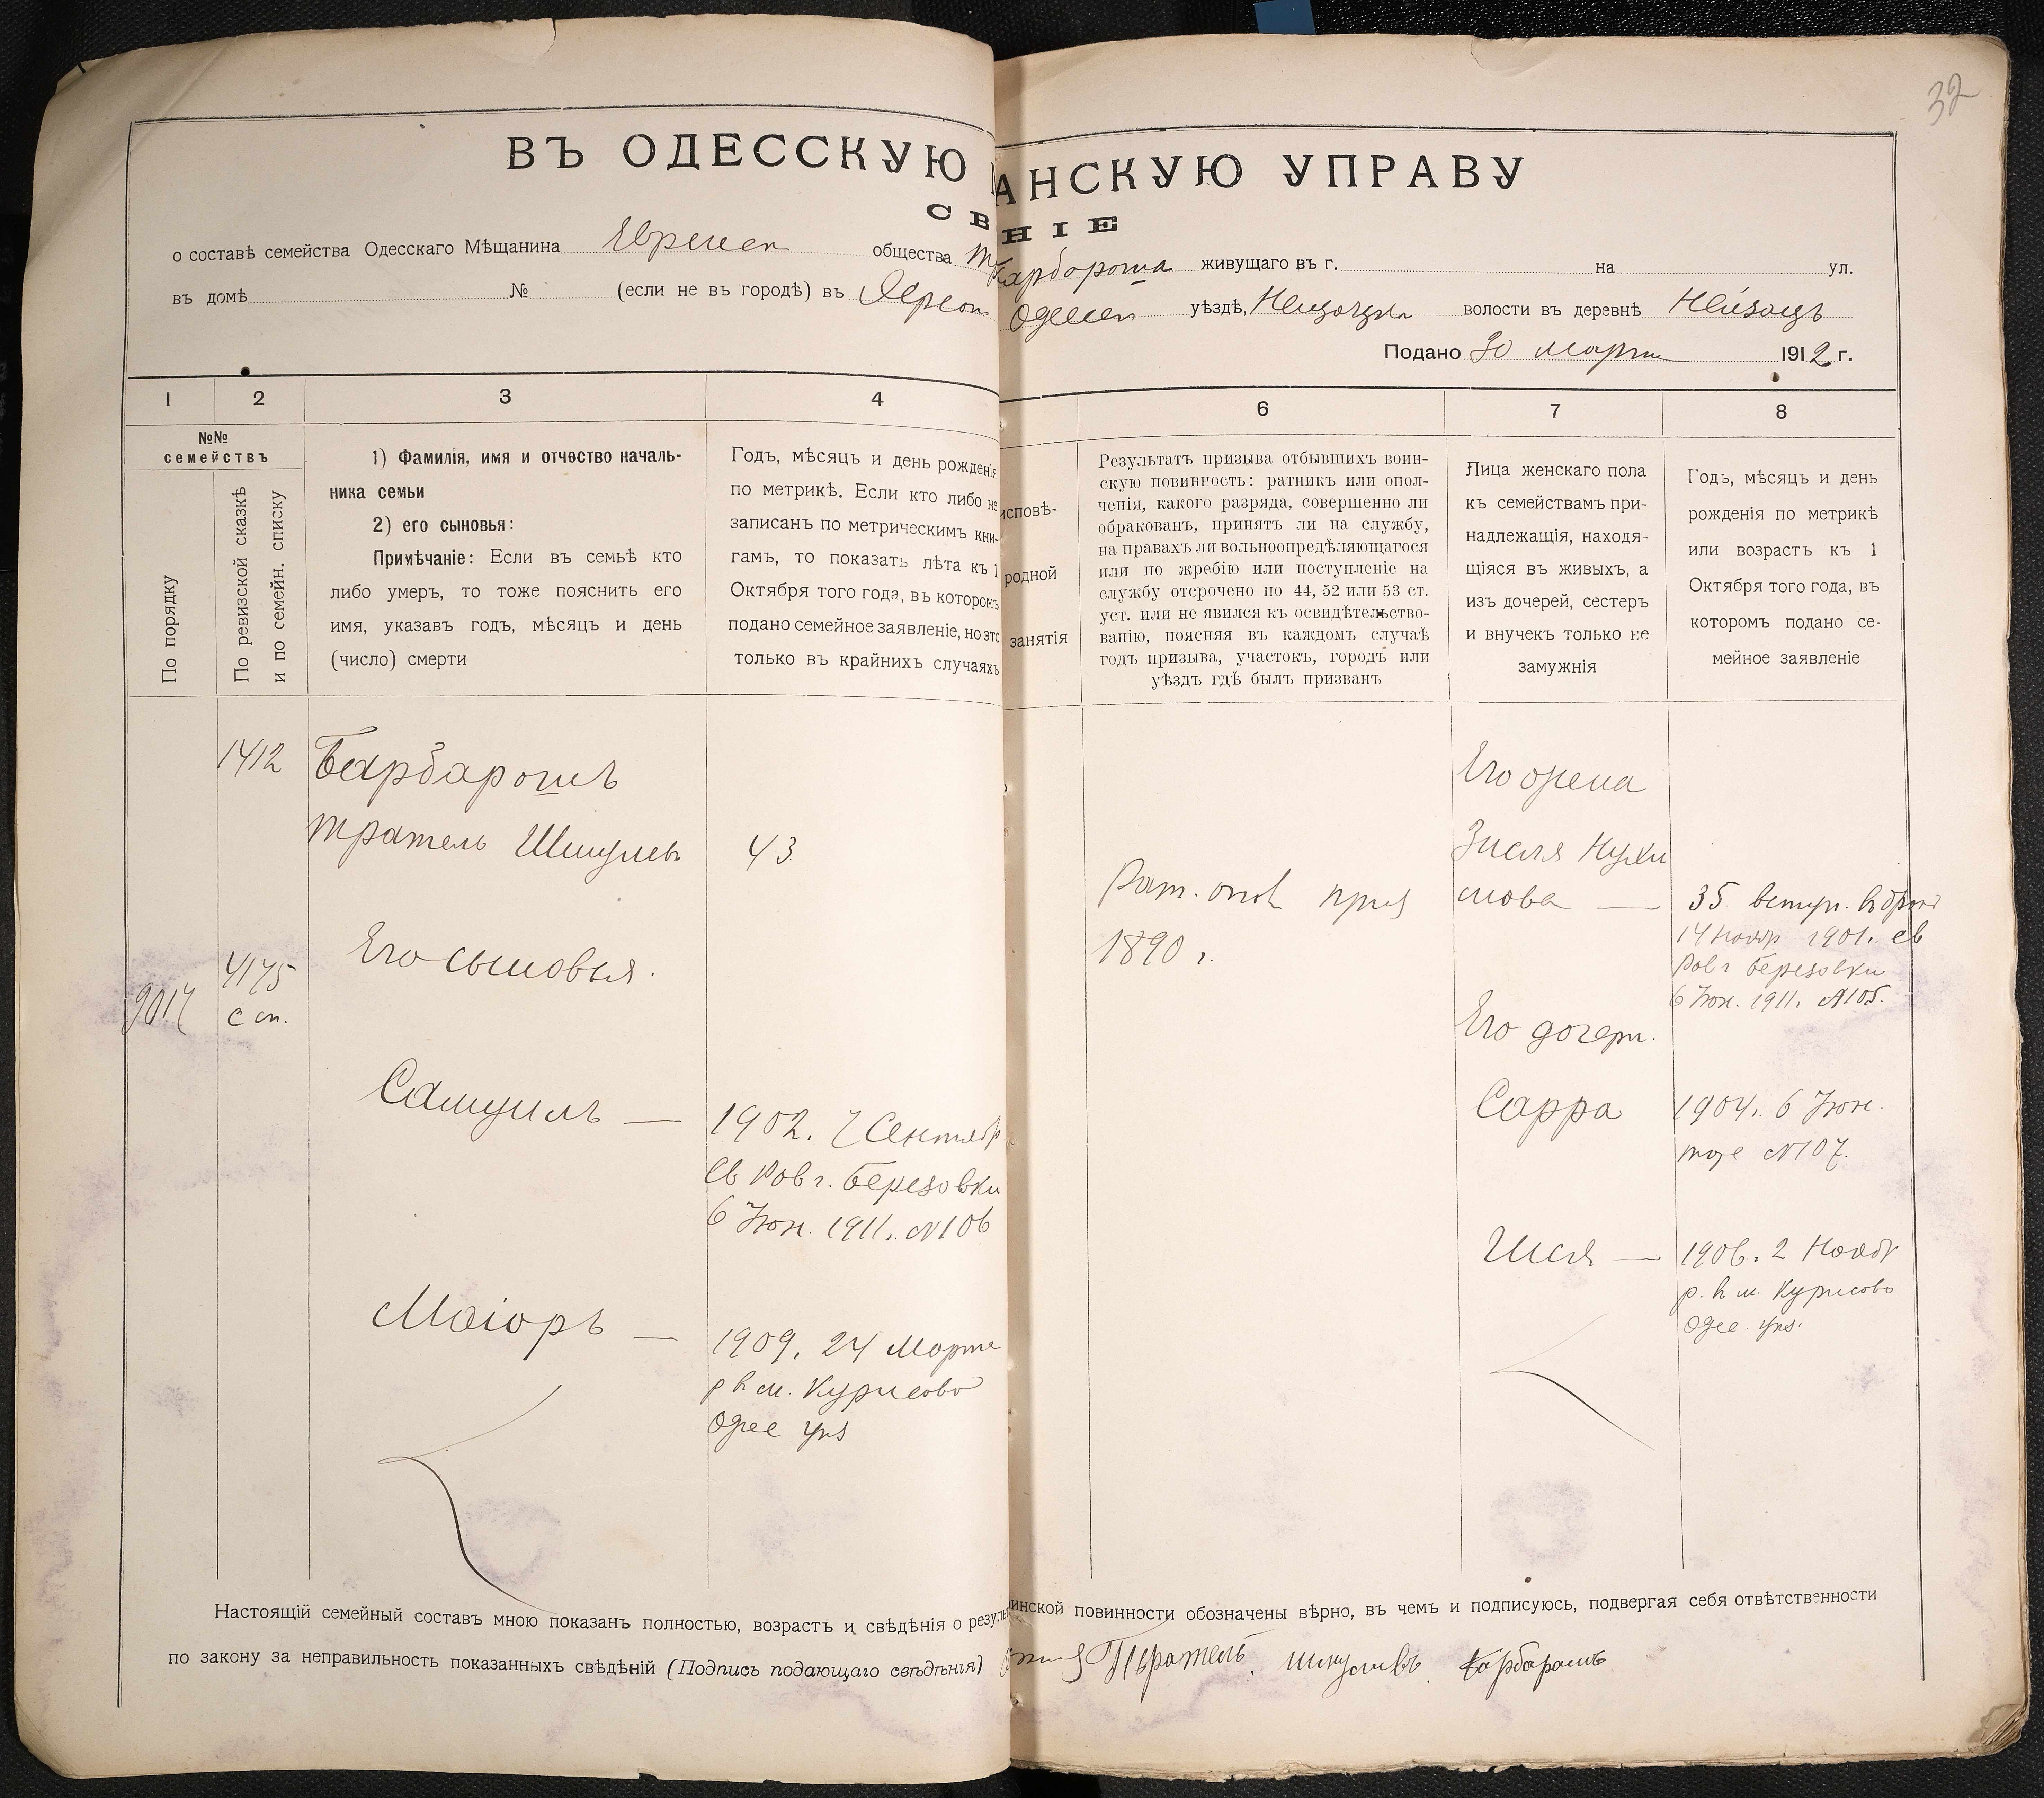 32
ВЪ ОДЕССКУЮ АНСКУЮ УПРАВУ
СВ НІЕ
о составѣ семейства Одесскаго Мѣщанина общества Барбароша живущаго въ г. на ул.
въ домѣ № (если не въ городѣ) въ Херсон Одесск уѣздѣ, волости въ деревнѣ
Подано 30 марта 1912 г.
1 2 3 4 6 7 8
№№
семействъ
По порядку
По ревизской сказкѣ
и по семейн. списку
1) Фамилія, имя и отчество началь-
ника семьи
2) его сыновья:
Примѣчаніе: Если въ семьѣ кто
либо умеръ, то тоже пояснить его
имя, указавъ годъ, мѣсяцъ и день
(число) смерти
Годъ, мѣсяцъ и день рожденія
по метрикѣ. Если кто либо не
записанъ по метрическимъ кни-
гамъ, то показать лѣта къ 1
Октября того года, въ которомъ
подано семейное заявленіе, но это
только въ крайнихъ случаяхъ
исповѣ-
родной
занятія
Результатъ призыва отбывшихъ воин-
скую повинность: ратникъ или опол-
ченія, какого разряда, совершенно ли
обракованъ, принятъ ли на службу,
на правахъ ли вольноопредѣляющагося
или по жребію или поступленіе на
службу отсрочено по 44, 52 или 53 ст.
уст. или не явился къ освидѣтельство-
ванію, поясняя въ каждомъ случаѣ
годъ призыва, участокъ, городъ или
уѣздъ гдѣ былъ призванъ
Лица женскаго пола
къ семействамъ при-
надлежащія, находя-
щіяся въ живыхъ, а
изъ дочерей, сестеръ
и внучекъ только не
замужнія
Годъ, мѣсяцъ и день
рожденія по метрикѣ
или возрастъ къ 1
Октября того года, въ
которомъ подано се-
мейное заявленіе
1412 Барбарошъ
Тратель Шмулев 43
Его сыновья.
4175
с сп.
9017
Самуилъ — 1902. 7 Сентябр
св Рав г. Березовки
6 Іюн. 1911. №106
Маіоръ — 1909. 24 Марта
р в м. Курисово
Одес уѣз
Рат. опол приз
1890 г.
Его жена
Зисля Нухи
мова — 35 вступ. в брак
14 Нояб 1901. св
Рав г Березовки
6 Іюн. 1911. №105.
Его дочери.
Сарра 1904. 6 Іюн.
тоже №107.
— 1906. 2 Нояб
р. в м. Курисово
Одес. уѣз.
Настоящій семейный составъ мною показанъ полностью, возрастъ и свѣдѣнія о резуль инской повинности обозначены вѣрно, въ чемъ и подписуюсь, подвергая себя отвѣтственности
по закону за неправильность показанныхъ свѣдѣній (Подпись подающаго свѣдѣнія) Тратель Шмулевъ Барбарошъ